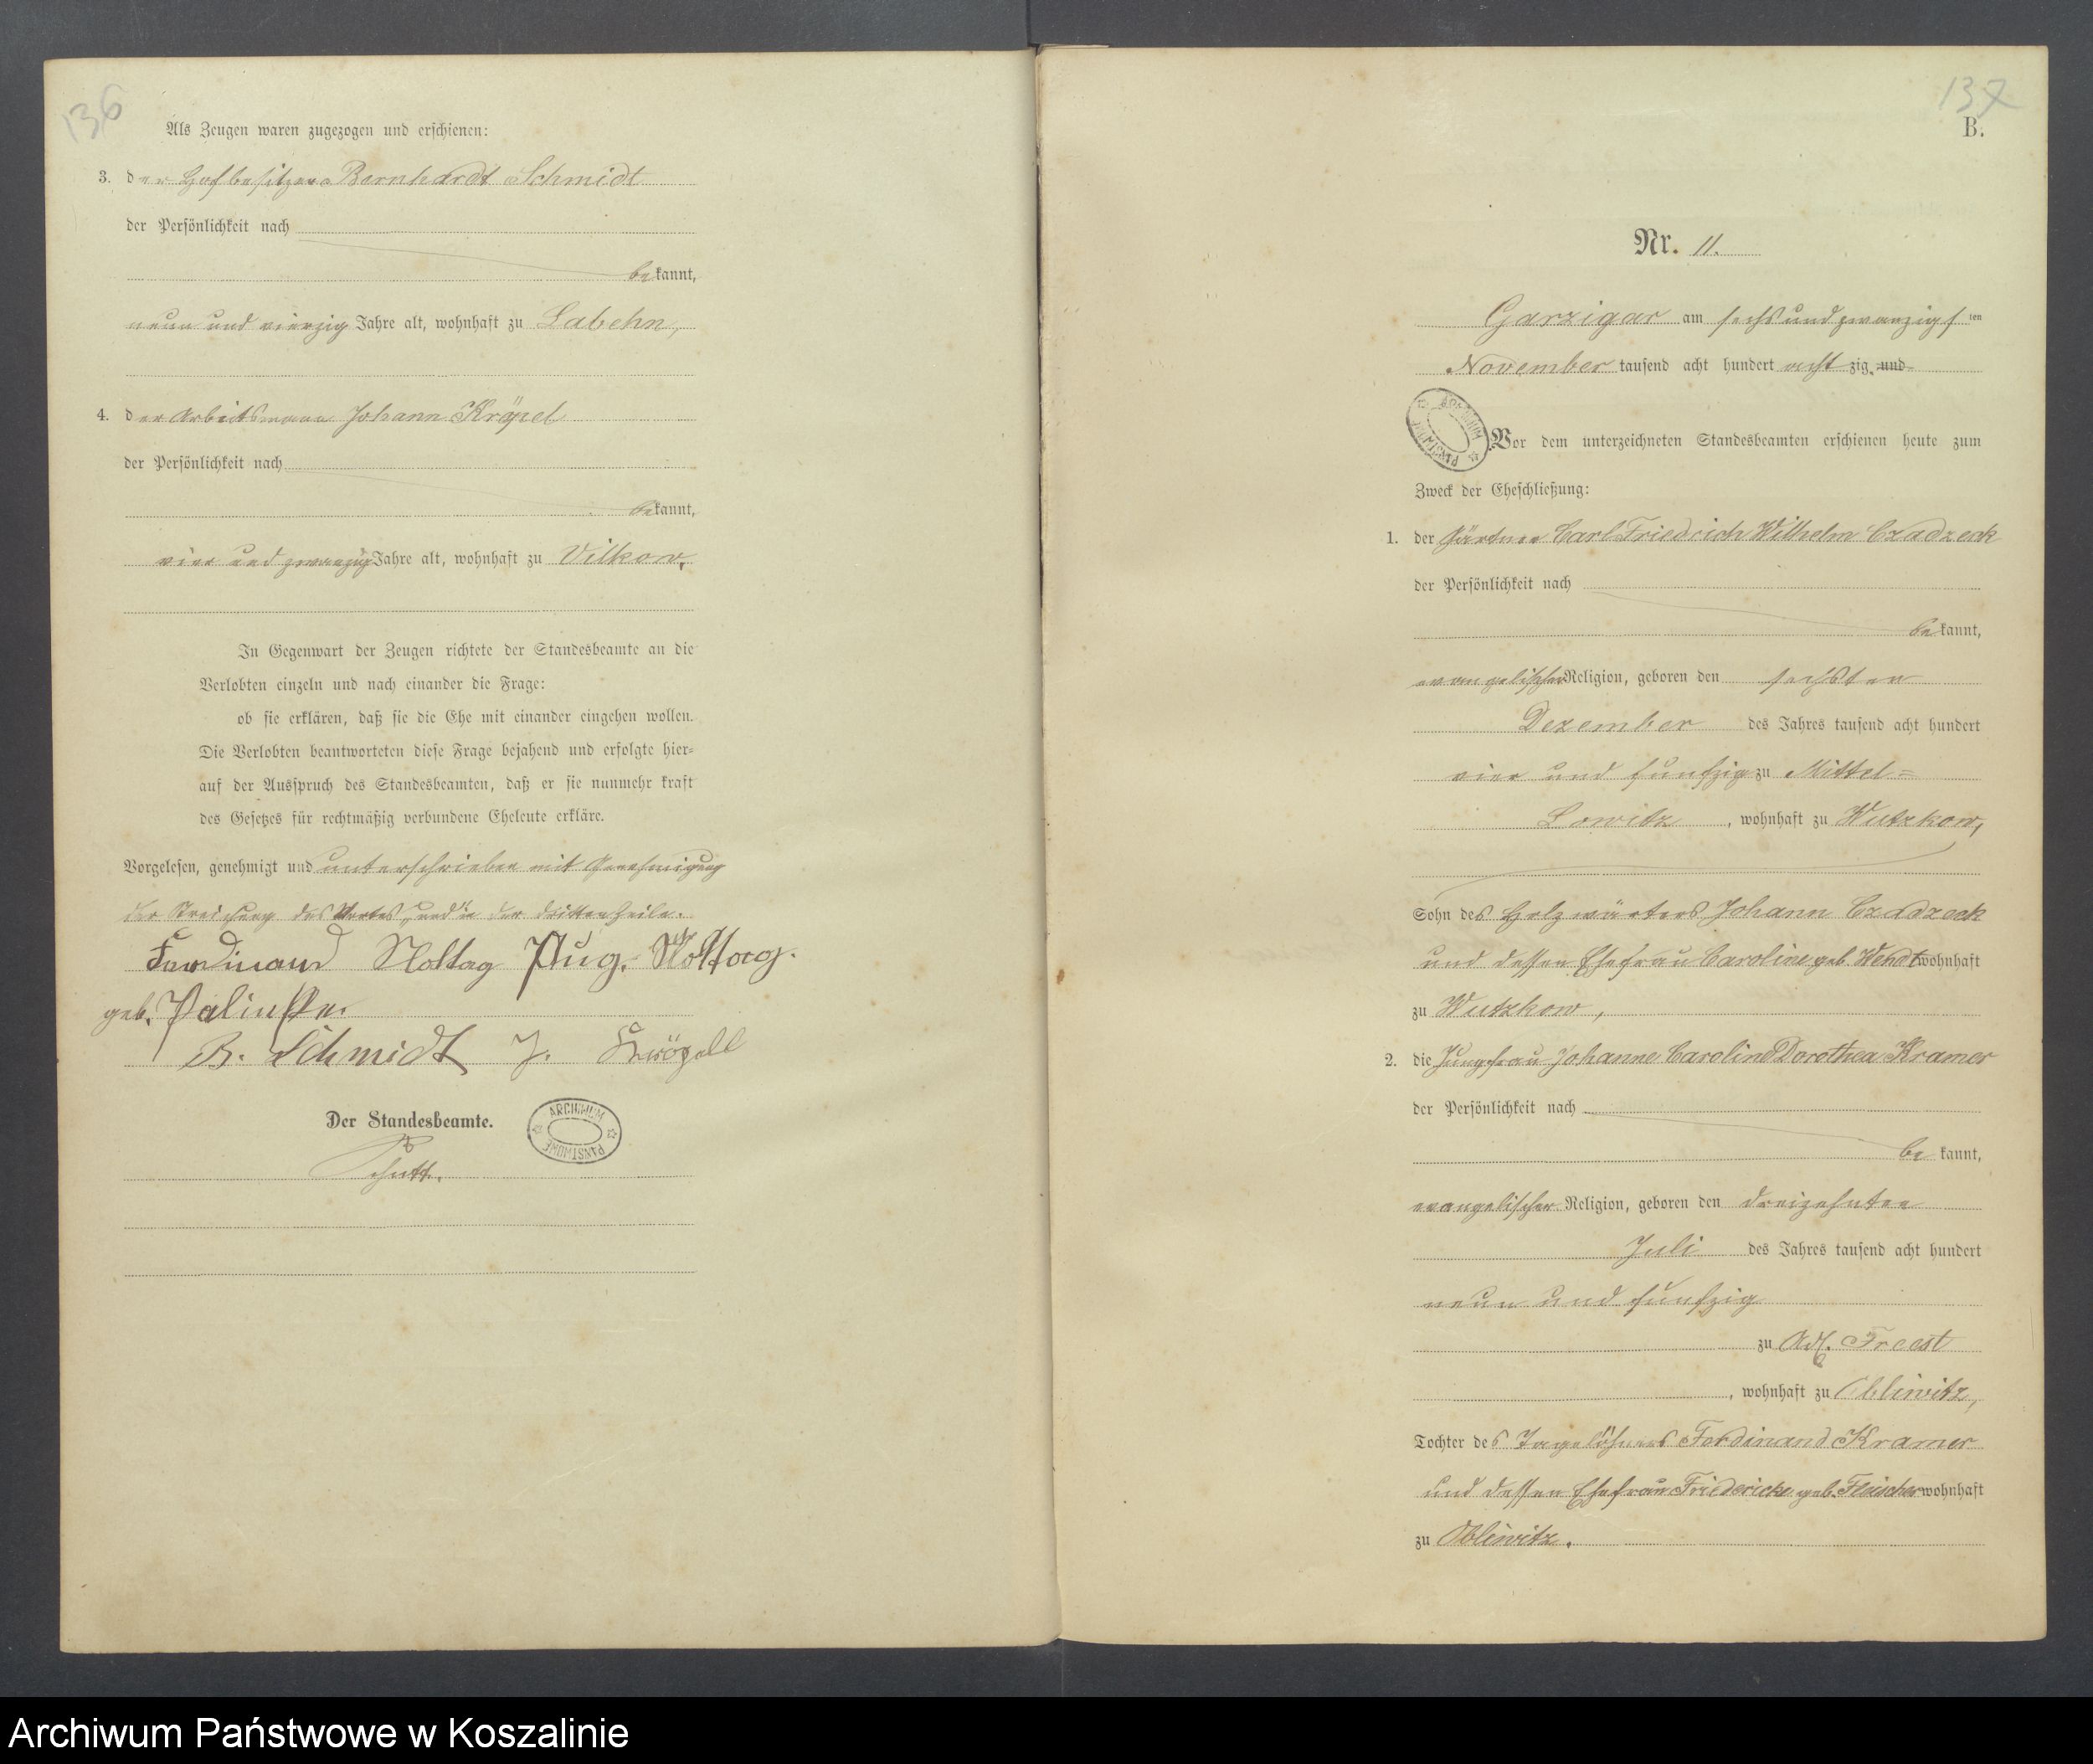 136
Als Zeugen waren zugezogen und erschienen:
3. der Hofbesitzer Bernhardt Schmidt
der Persönlichkeit nach
bekannt,
neun und vierzig Jahre alt, wohnhaft zu Labehn,
4. der Arbeitsmann Johann Kröpel
der Persönlichkeit nach
bekannt,
vier und zwanzig Jahre alt, wohnhaft zu Vilkow.
In Gegenwart der Zeugen richtete der Standesbeamte an die
Verlobten einzeln und nach einander die Frage:
ob sie erklären, daß sie die Ehe mit einander eingehen wollen.
Die Verlobten beantworteten diese Frage bejahend und erfolgte hier-
auf der Ausspruch des Standesbeamten, daß er sie nunmehr kraft
des Gesetzes für rechtmäßig verbundene Eheleute erkläre.
Vorgelesen, genehmigt und unterschrieben mit Genehmigung
der Streichung des Wortes „und“ in der dritten Zeile.
Ferdinand Noltag Aug. Noltag.
geb.
B. Schmidt J. Kröpell
Der Standesbeamte.
ARCHIWUM PAŃSTWOWE
137
B.
Nr. 11.
Garzigar am sechs und zwanzigsten
November tausend acht hundert achtzig und
ARCHIWUM PAŃSTWOWE
Vor dem unterzeichneten Standesbeamten erschienen heute zum
Zweck der Eheschließung:
1. der Gärtner Carl Friedrich Wilhelm Czadzeck
der Persönlichkeit nach
bekannt,
evangelischer Religion, geboren den sechsten
Dezember des Jahres tausend acht hundert
vier und funfzig zu Mittel=
Lowitz, wohnhaft zu Wutzkow,
Sohn des Holzwärters Johann Czadzeck
und dessen Ehefrau Caroline geb. Wendt wohnhaft
zu Wutzkow,
2. die Jungfrau Johanne Caroline Dorothea Kramer
der Persönlichkeit nach
bekannt,
evangelischer Religion, geboren den dreizehnten
Juli des Jahres tausend acht hundert
neun und funfzig
zu Adl. Freest
, wohnhaft zu Obliwitz,
Tochter des Tagelöhners Ferdinand Kramer
und dessen Ehefrau Friedericke geb. Fleischer wohnhaft
zu Obliwitz.
Archiwum Państwowe w Koszalinie